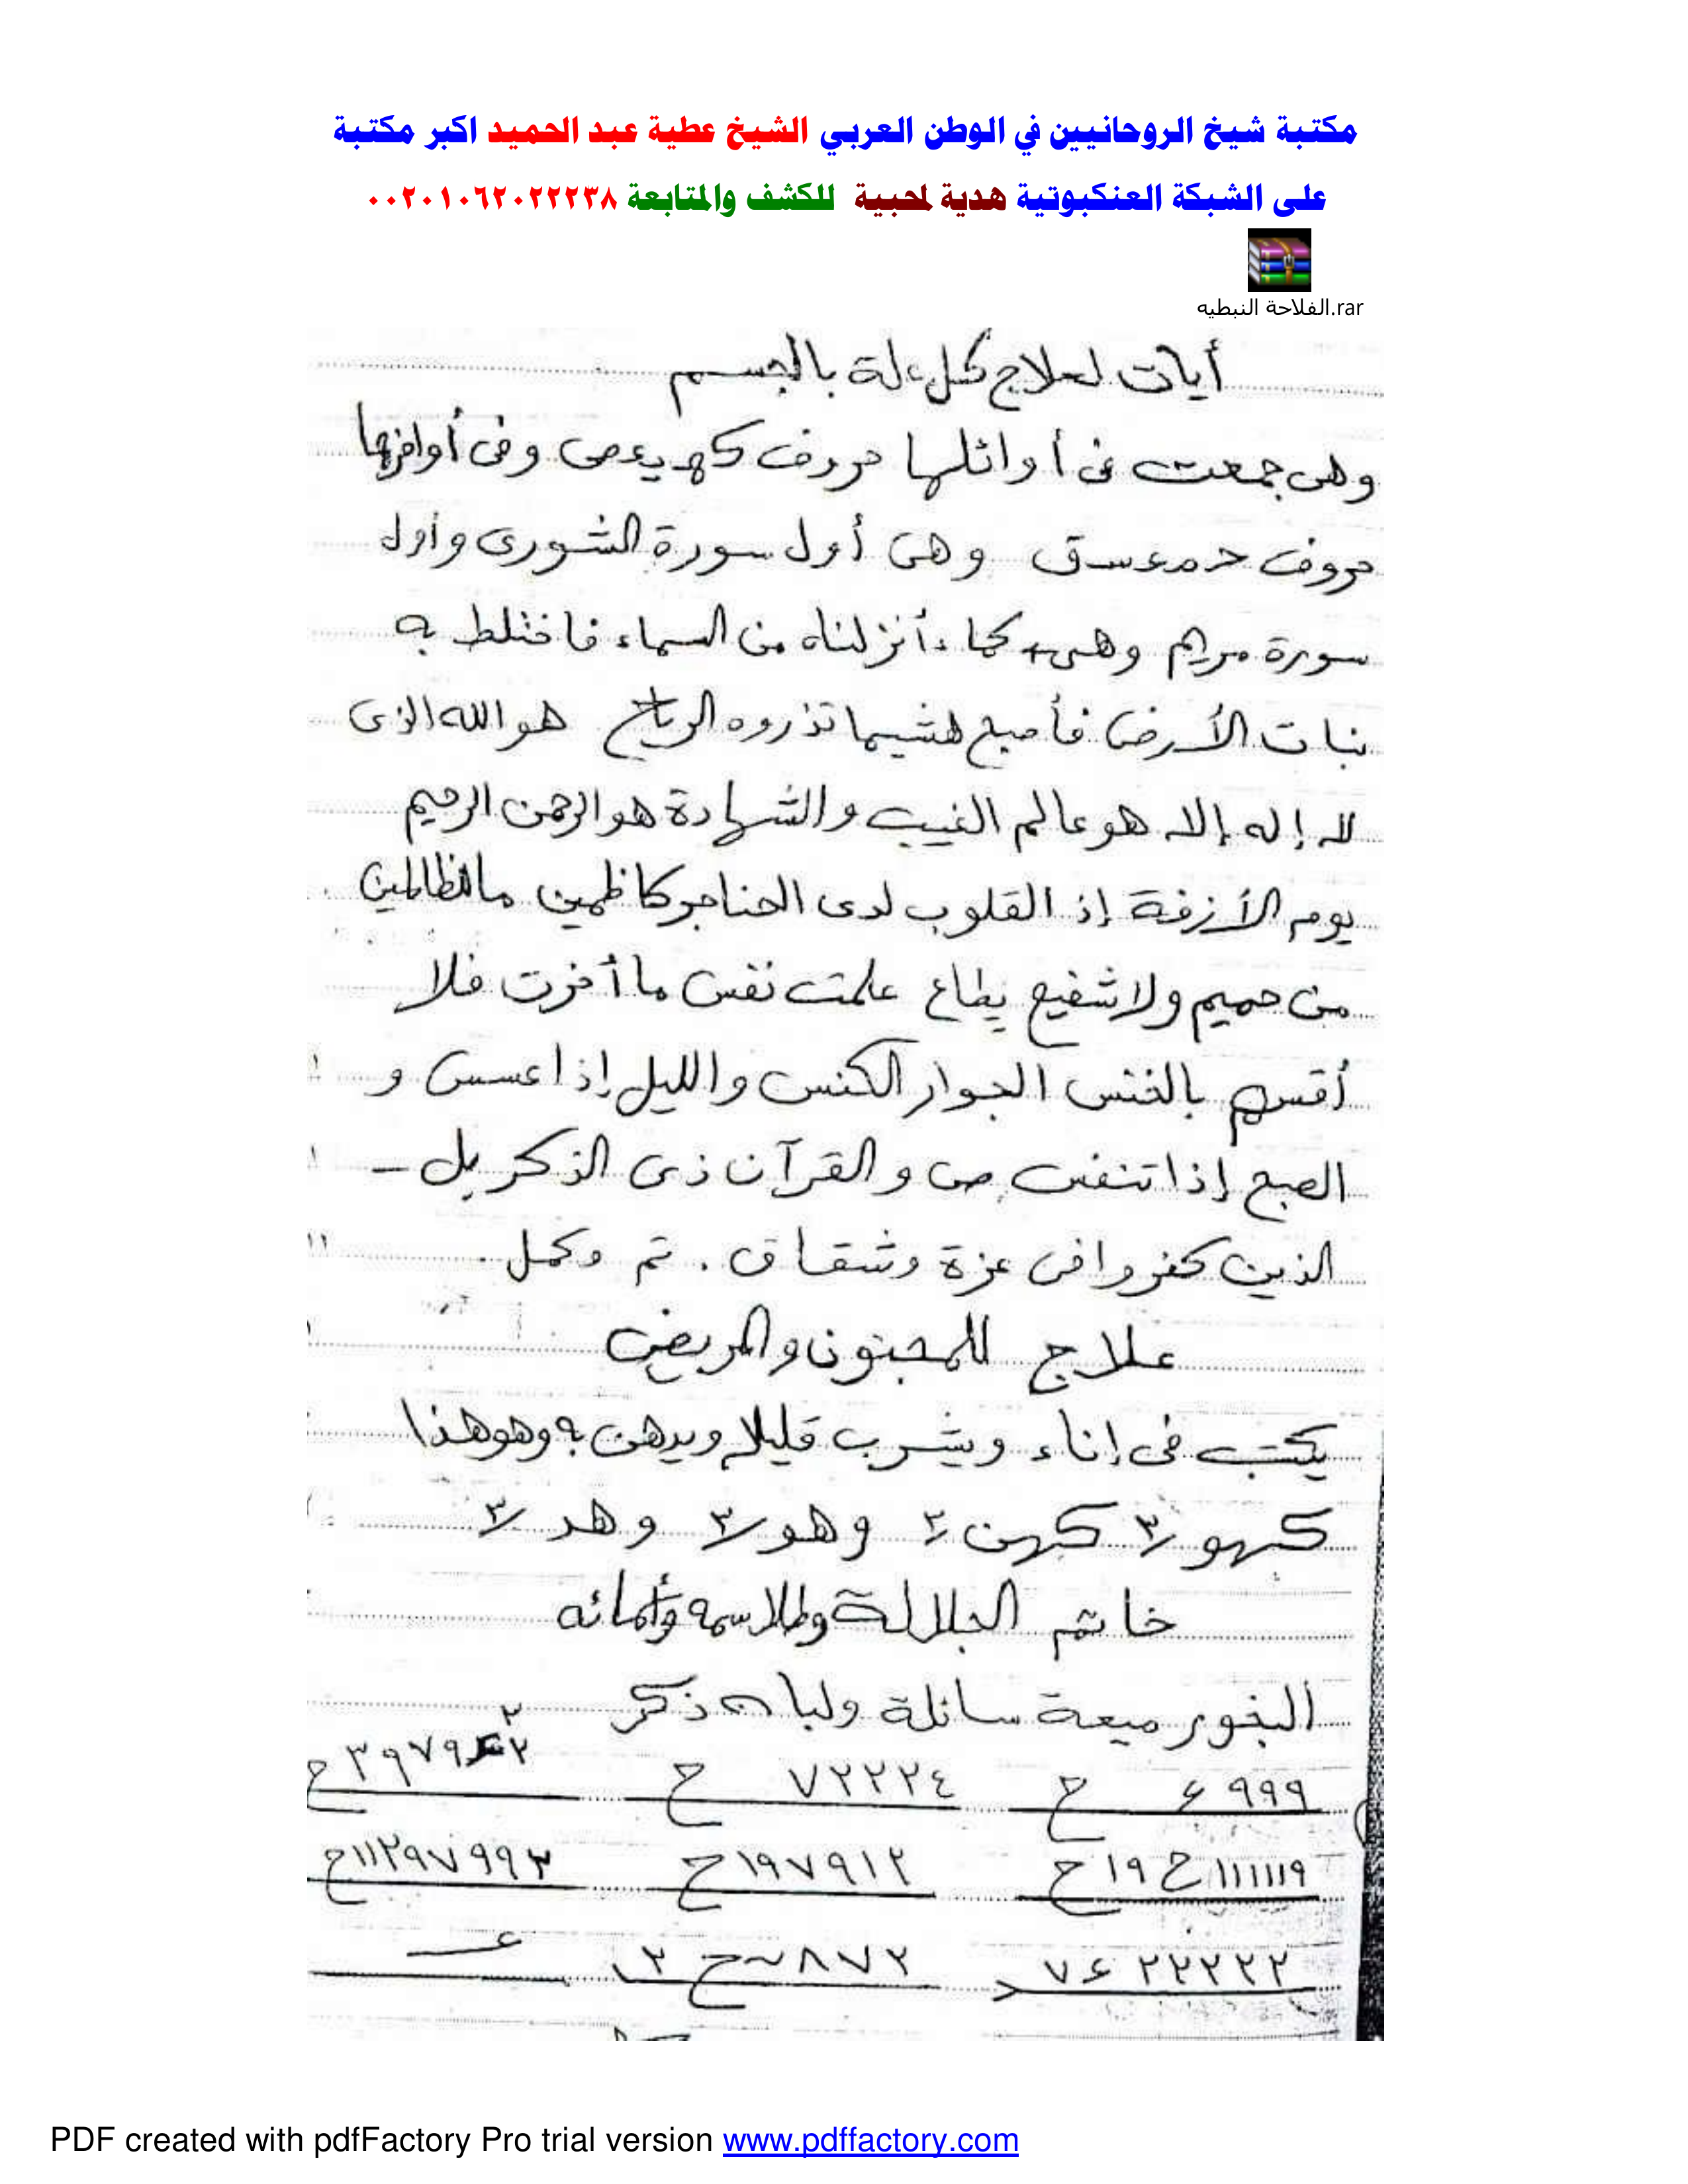 مكتبة شيخ الروحانيين في الوطن العربي الشيخ عطية عبد الحميد اكبر مكتبة
على الشبكة العنكبوتية هدية لمحبية للكشف والمتابعة ٠٠٢٠١٠٦٢٠٢٢٢٣٨
الفلاحة النبطيه.rar
أيات لعلاج كل علة بالجسم
وهى جمعت فى أوائلها حروف كهيعص وفى أواخرها
حروف حمعسق وهى أول سورة الشورى وأول
سورة مريم وهى كماء أنزلناه من السماء فاختلط به
نبات الأرض فأصبح هشيما تذروه الرياح هو الله الذى
لا إله إلا هو عالم الغيب والشهادة هو الرحمن الرحيم
يوم الأزفة إذ القلوب لدى الحناجر كاظمين ما للظالمين
من حميم ولا شفيع يطاع علمت نفس ما أخرت فلا
أقسم بالخنس الجوار الكنس والليل إذا عسس و
الصبح إذا تنفس ص والقرآن ذى الذكر بل -
الذين كفروا فى عزة وشقاق . تم وكمل .
علاج للمجنون والمريض
يكتب فى إناء ويشرب قليلا ويدهن به وهو هذا
كهو ٣ كهن ٣ وهو ٣ وهد ٣
خاتم الجلالة وطلاسمه وأسمائه
البخور ميعة سائلة ولبان ذكر
٩٩٩ ع ح ٧٢٢٢٤ ح
١١١١١١٩ ح ١٩ ح ١٩٧٩١٢ ح ١١٢٩٧٩٩٣ ح
PDF created with pdfFactory Pro trial version www.pdffactory.com